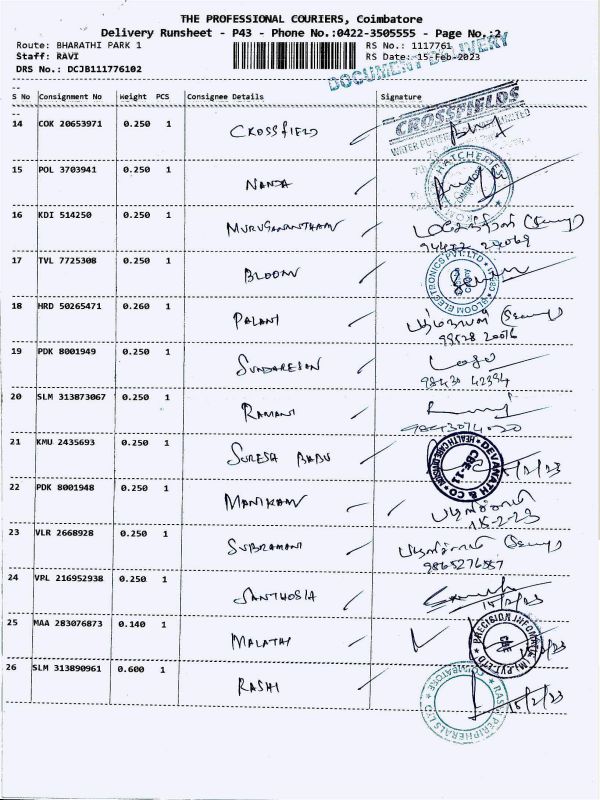 THE PROFESSIONAL COURIERS, Coimbatore
Delivery Runsheet - P43 - Phone No.:0422-3505555 - Page No.:2
Route: BHARATHI PARK 1 RS No.: 1117761
Staff: RAVI RS Date: 15-Feb-2023
DRS No.: DCJB111776102
DOCUMENT DELIVERY
S No Consignment No Weight PCS Consignee Details Signature
14 COK 20653971 0.250 1 CROSSFIELD CROSSFIELDS
15 POL 3703941 0.250 1 NANDA HATCHERIES
16 KDI 514250 0.250 1 MURUGANANTHAM
17 TVL 7725308 0.250 1 BLOOM BLOOM ELECTRONICS PVT. LTD
18 HRD 50265471 0.260 1 PALANI
99528 20076
19 PDK 8001949 0.250 1 SUNDARESON
98430 42394
20 SLM 313873067 0.250 1 RAMANI
9843074020
21 KMU 2435693 0.250 1 SURESH BABU DEVANATH & CO HEALTH CARE DIVISION CBE-11 15/2/23
22 PDK 8001948 0.250 1 MANIKAM
15-2-23
23 VLR 2668928 0.250 1 SUBRAMANI
9865276557
24 VPL 216952938 0.250 1 SANTHOSIA
15/2/23
25 MAA 283076873 0.140 1 MALATHI PRECISION INFOMATIC (M) PVT LTD CBE
26 SLM 313890961 0.600 1 RASHI RASHI PERIPHERALS LTD COIMBATORE 15/2/23